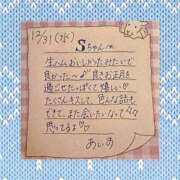 12/31(水)
Sちゃんへ
生ハムおいしかったみたいで
良かった〜♪良きお正月を
過ごせたっぽくて嬉しい♡
たくさんキスして、色んな話も
できて、また会いたいなって
思ってるよ♡
あいの